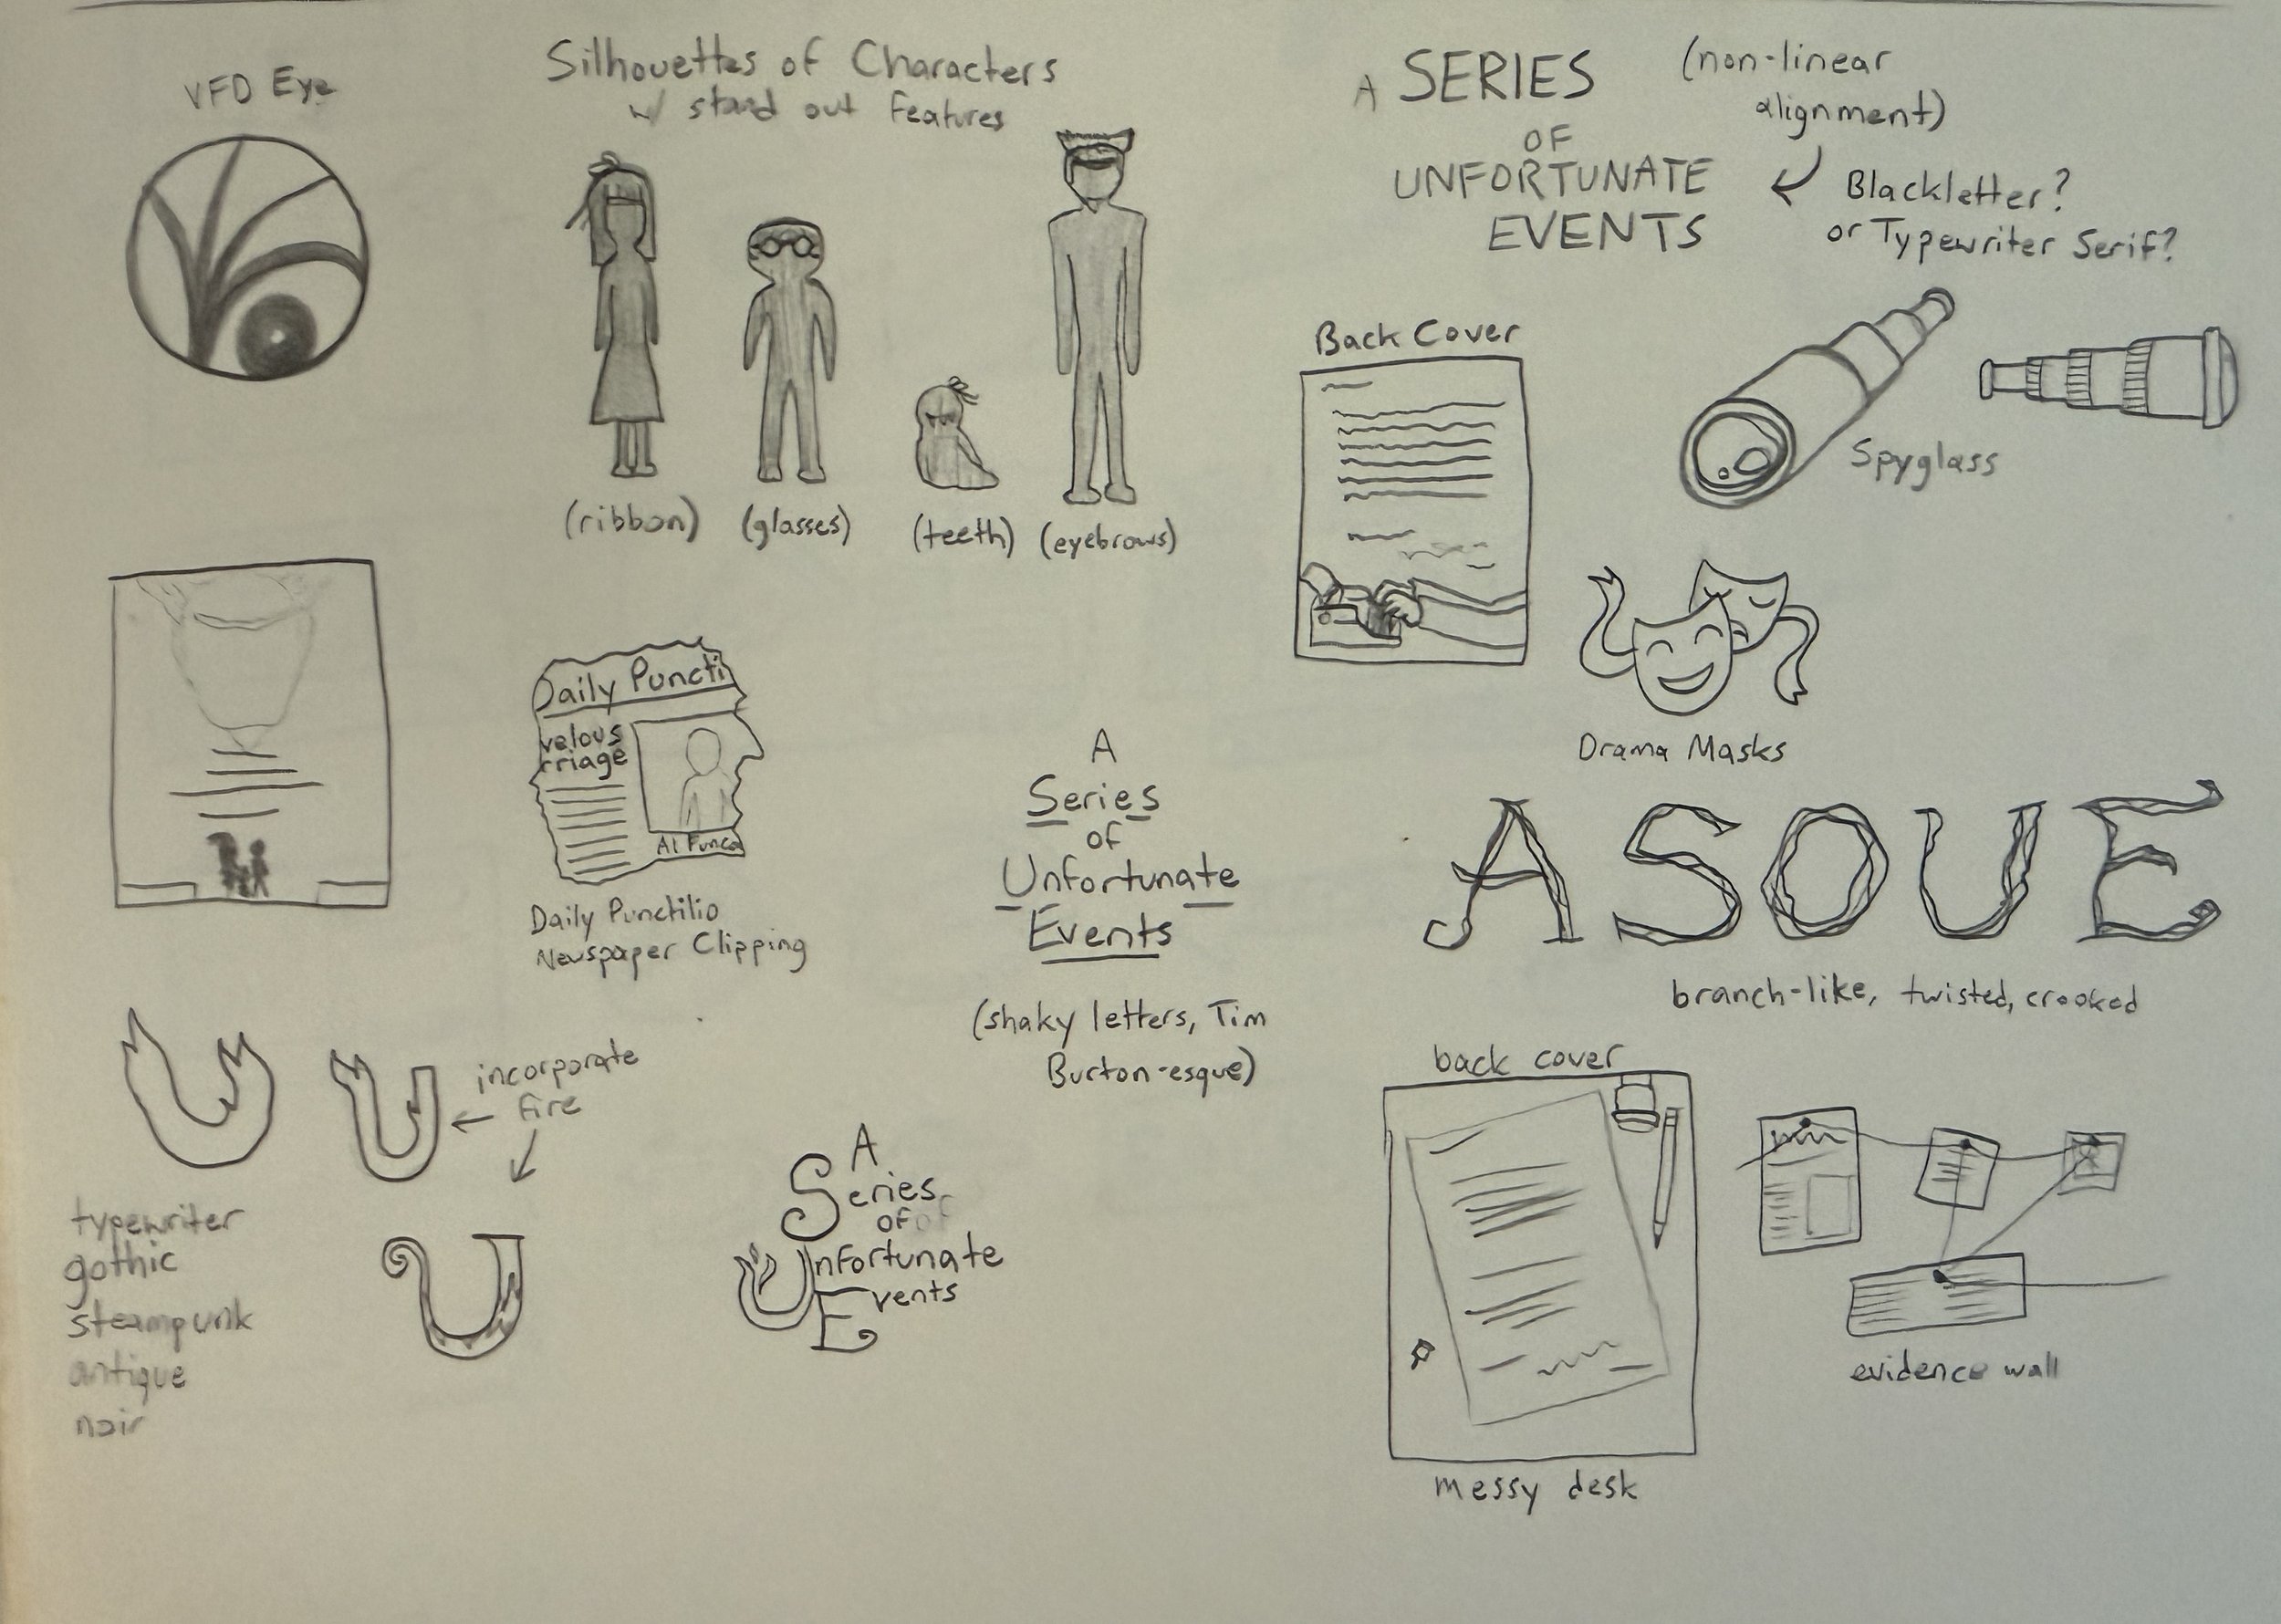 VFD Eye
Silhouettes of Characters
w/ stand out features
(ribbon)
(glasses)
(teeth)
(eyebrows)
A SERIES
OF
UNFORTUNATE
EVENTS
(non-linear
alignment)
Blackletter?
or Typewriter Serif?
Back Cover
Spyglass
Drama Masks
Daily Puncti
velous
rriage
Al Funco
Daily Punctilio
Newspaper Clipping
A
Series
of
Unfortunate
Events
(shaky letters, Tim
Burton-esque)
ASOUE
branch-like, twisted, crooked
U
U
incorporate
fire
U
typewriter
gothic
steampunk
antique
noir
A
Series
of of
Unfortunate
Events
back cover
messy desk
evidence wall